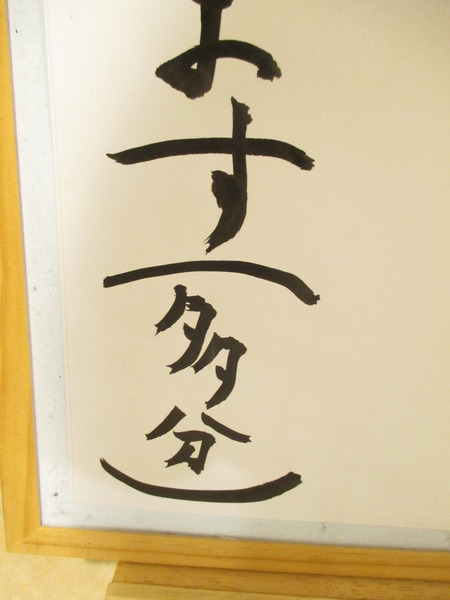 ます(多分)